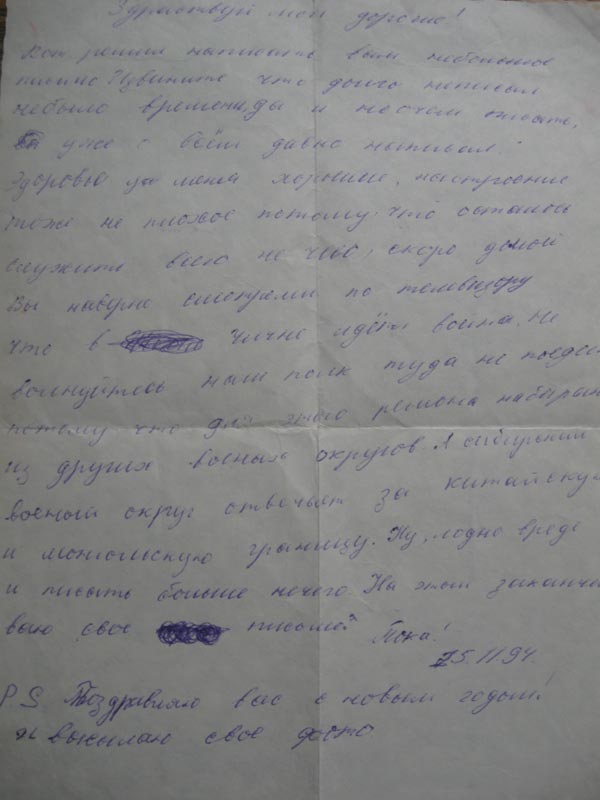 Здравствуй мои дорогие!
Вот решил написать вам небольшое
письмо Извините что долго неписал
небыло времени да и неочем писать.
уже с
Здоровье у меня хорошее, настроение
тоже не плохое потому что осталось
служить всего не чего, скоро домой
Вы наверне смотрели по телевизору
что в Чичне идёт война. Не
волнуйтесь наш полк туда не поедет
потому что для этого региона набирают
из других военых округов. А сибирский
военый округ отвечает за китайскую
и монгольскую границу. Ну, ладно вроде
и писать больше нечего. На этом заканчи
ваю свое письмо. Пока!
25.11.94.
P.S. Поздравляю вас с новым годом!
и высылаю свое фото.